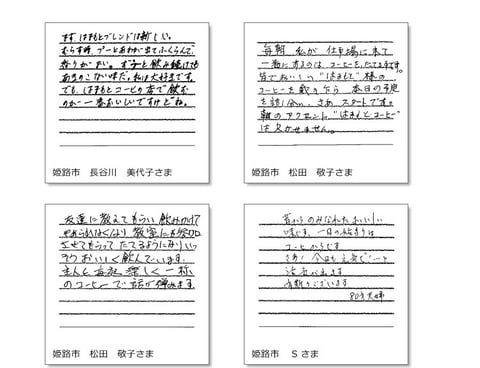 まず、はまもとブレンドは新しい。
むらす時、プーとあわが出てふくらんで、
香りがいい。ずーっと飲み続けても
あきのこない味だ。私は大好きです。
でも、はまもとコーヒーの店で飲む
のが一番おいしいですけどね。
姫路市 長谷川 美代子さま
毎朝、私が仕事場に来て
一番にするのは、コーヒーをたてる事です。
皆でおいしい"はまもと"様の
コーヒーを戴き乍ら 本日の予定
を話し合い、さあ、スタートです。
朝のアクセント"はまもとコーヒー"
は欠かせません。
姫路市 松田 敬子さま
友達に教えてもらい飲みかけて
やめられなくなり 教室にも参加
させてもらって たてるようになり いっ
そう おいしく飲んでいます。
主人と毎夜 楽しく一杯
のコーヒーで話が弾みます。
姫路市 松田 敬子さま
昔からのみなれたおいしい
味です。一日の始まりは
コーヒからです
さあ!今日も元気で!と
活力が出ます
有難うございます
80才 夫婦
姫路市 Sさま